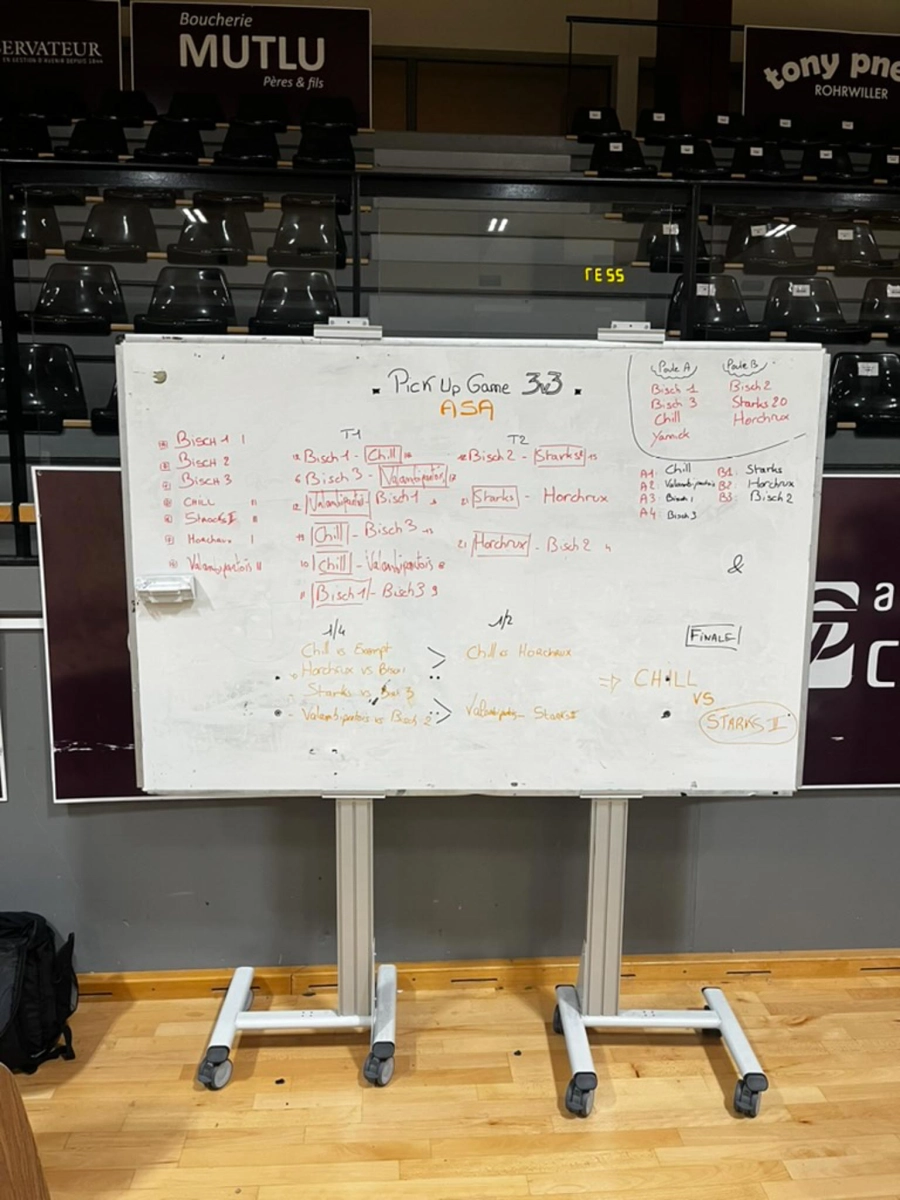 SERVATEUR
EN GESTION D'AVENIR DEPUIS
Boucherie
MUTLU
Pères & fils
tony pne
ROHRWILLER
Pick Up Game 3v3
ASA
Poule A Poule B
Bisch 1 Bisch 2
Bisch 3 Starks 20
Chill Horchrux
Yannick
A1 Chill B1: Starks
A2 Valambiportois B2: Horchrux
A3 Bisch 1 B3: Bisch 2
A4 Bisch 3
BISCH 1 I
BISCH 2
BISCH 3
CHILL II
II
Horchrux I
Valambiportois II
T1
Bisch 1 - Chill
6 Bisch 3 - Valambiportois
12 Valambiportois Bisch 1
Chill - Bisch 3
10 Chill - Valambiportois 8
11 Bisch 1 - Bisch 3 9
T2
Bisch 2 - Starks
21 Starks - Horchrux
21 Horchrux - Bisch 2
&
1/4
Chill vs Exempt
Horchrux vs Bisch 1
Starks vs 3
Valambiportois vs Bisch 2
1/2
Chill vs Horchrux
Starks II
FINALE
⇒ CHILL
VS
STARKS II
a
C